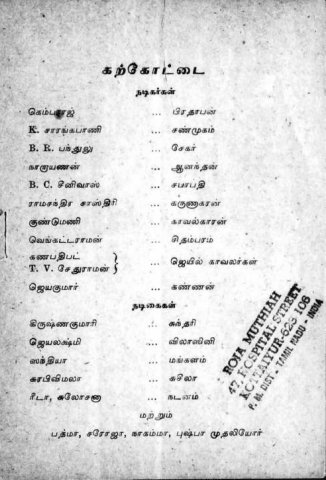 கற்கோட்டை
நடிகர்கள்
கெம்பராஜ் ... பிரதாபன்
K. சாரங்கபாணி ... சண்முகம்
B. R. பந்துலு ... சேகர்
நாராயணன் ... ஆனந்தன்
B. C. சீனிவாஸ் ... சபாபதி
ராமசந்திர சாஸ்திரி ... கருணாகரன்
குண்டுமணி ... காவல்காரன்
வெங்கட்டராமன் ... சிதம்பரம்
கணபதிபட்
T. V. சேதுராமன் } ... ஜெயில் காவலர்கள்
ஜெயகுமார் ... கண்ணன்
நடிகைகள்
கிருஷ்ணகுமாரி ... சுந்தரி
ஜெயலக்ஷ்மி ... விலாஸினி
ஸக்தியா ... மங்களம்
சுரபிவிமலா ... சுசிலா
ரீடா, சுலோசனா ... நடனம்
மற்றும்
பத்மா, சரோஜா, நாகம்மா, புஷ்பா முதலியோர்
ROJA MUTHIAH
47, HOSPITAL STREET
KOTTAIYUR-623 106
P. M. DIST - TAMIL NADU - INDIA